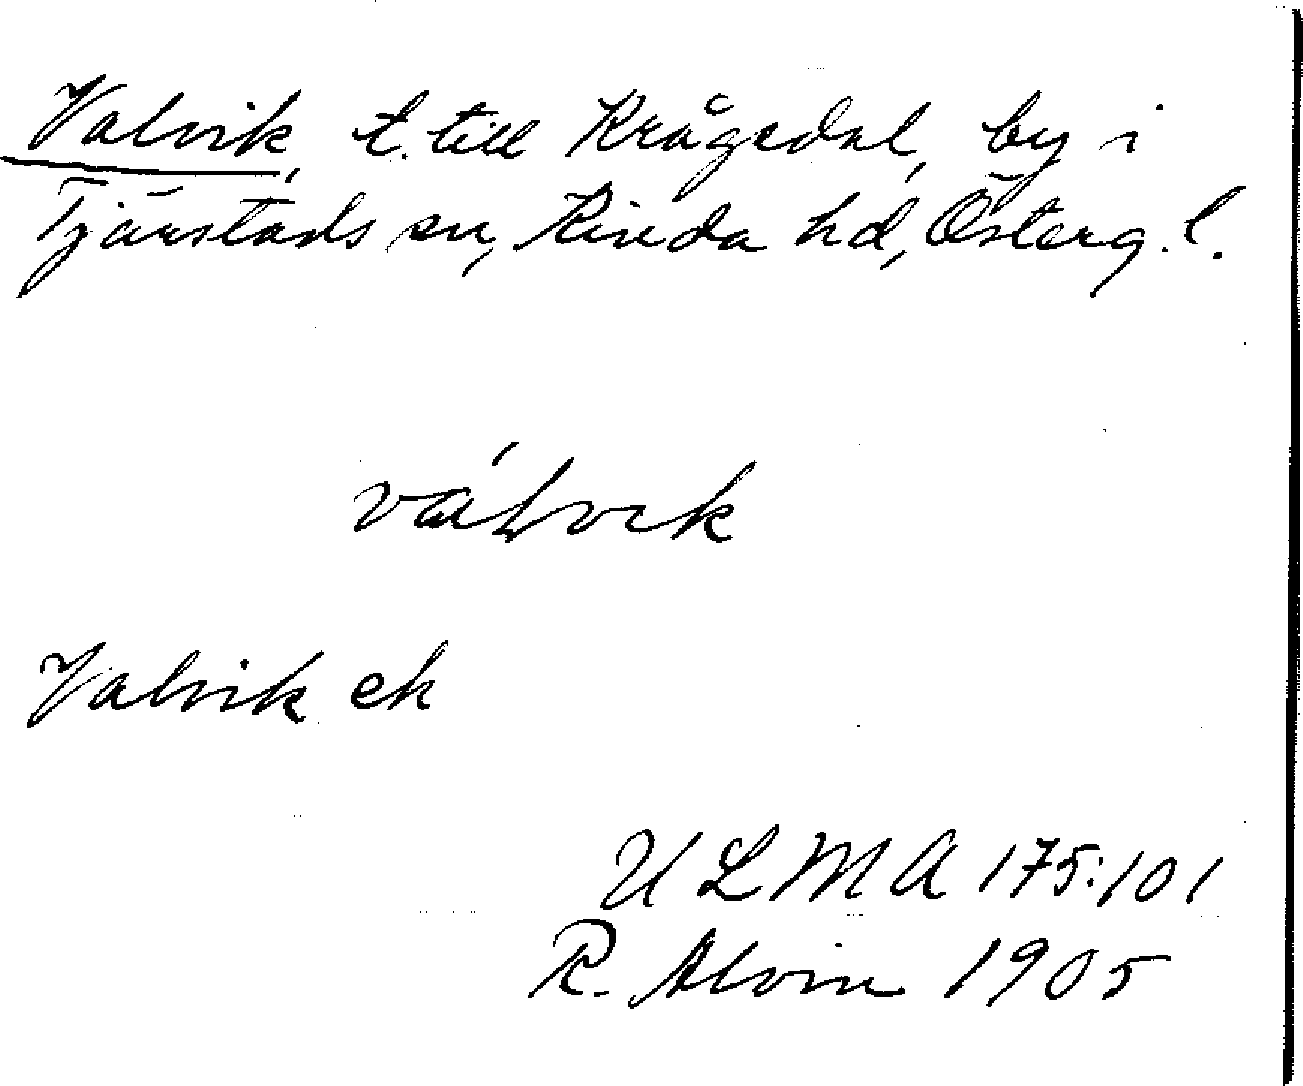 Valvik, t. till Krågedal, by i
Tjärstads sn, Kinda hd, Österg. l.
válvik
Valvik ek
ULMA 175:101
R. Alvin 1905